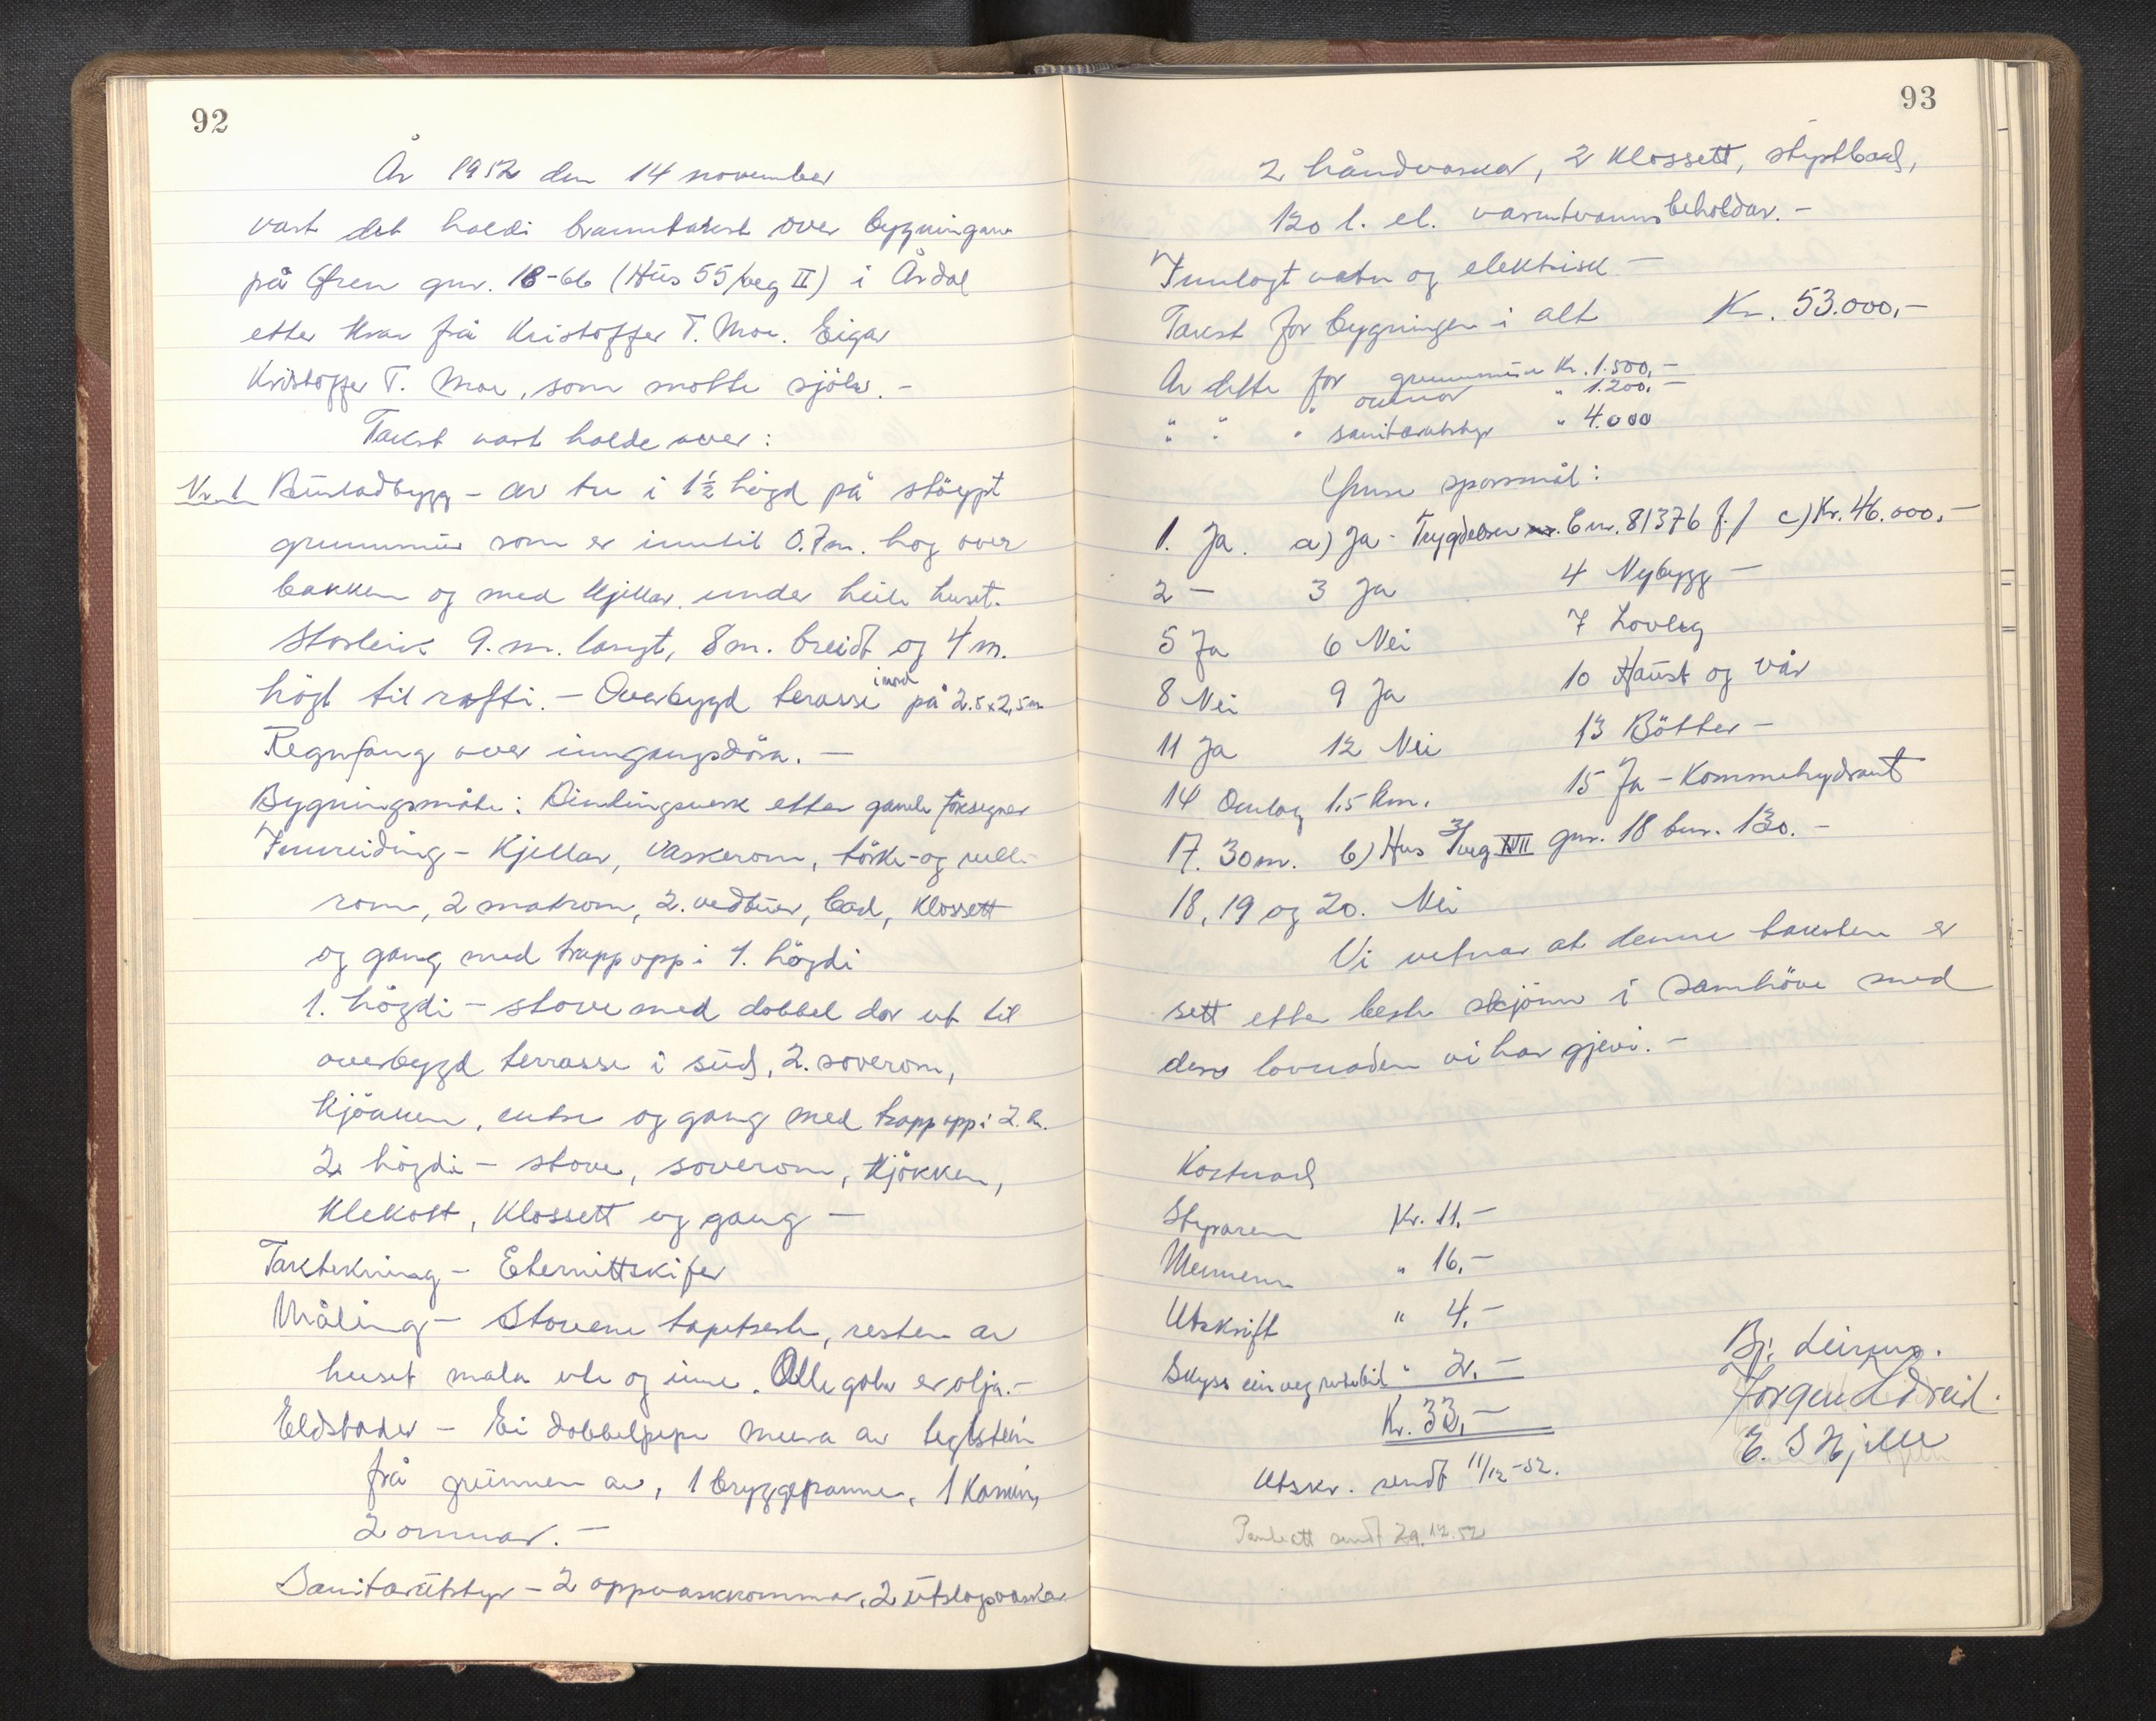 92
År 1952 den 14 november
vart det haldi branntakst over bygningane
på Øren gnr. 18-66 (Hus 55/veg II) i Årdal
etter krav frå Kristoffer T. Moe. Eigar
Kristoffer T. Moe, som møtte sjölv. -
Takst vart halde over:
Nr. 1 Bustadbygg - av tre i 1½ högd på stöypt
grunnmur som er inntil 0.7 m. høg over
bakken og med kjellar under heile huset.
Storleik 9. m. langt, 8 m. breidt og 4 m.
högt til rafti. - Overbygd terasse i nord på 2.5 x 2,5 m
Regnfang over inngangsdöra. -
Bygningsmåte: Bindingsverk etter gamle föresegner
Innreiding - Kjellar, vaskerom, törke- og rulle-
rom, 2 matrom, 2. vedbuer, bad, klossett
og gang med trapp opp i 1. högdi
1. högdi - stove med dobbel dør ut til
overbygd terrasse i sud, 2. soverom,
kjökken, entre og gang med trapp opp i 2. h.
2. högdi - stove, soverom, kjökken,
klekott, klossett og gang -
Taktekning - Eternittskifer
Måling - Stovene tapetserte, resten av
huset mala ute og inne. Alle golv er olja. -
Eldstader - Ei dobbelpipe mura av teglstein
frå grunnen av, 1 bryggepanne, 1 kamin,
2 omnar. -
Sanitærutstyr - 2 oppvaskkommar, 2 utslagsvaskar
93
2 håndvaskar, 2 klossett, styrtbad,
120 l. el. varmtvannsbeholdar. -
Innlagt vatn og elektrisk -
Takst for bygningen i alt Kr. 53.000,-
Av dette for grunnmur Kr. 1.500,-
" omnar " 1.200,-
" " " sanitærutstyr " 4.000
Ymse spørsmål:
1. Ja. a) Ja - Trygdelsen Enr. 81376 f./ c) Kr. 46.000,-
2 - 3 Ja 4 Nybygg -
5 Ja 6 Nei 7 Lovleg
8 Nei 9 Ja 10 Haust og vår
11 Ja 12 Nei 13 Bötter -
14 Omlag 1.5 km. 15 Ja - Kommehydrant
17. 30 m. b) Hus 3/veg XVII gnr. 18 bnr. 130. -
18, 19 og 20. Nei
Vi vitnar at denne taksten er
sett etter beste skjönn i samhöve med
den lovnaden vi har gjevi. -
Kostnad
Styraren Kr. 11,-
Mennene " 16,-
Utskrift " 4,-
Skyss ein veg rutebil " 2,-
Kr. 33,-
Utskr. sendt 11/12-52.
sendt 29.12.52
Bj. Leirmo.
Jørgen Lidreid.
E. S Hjelle